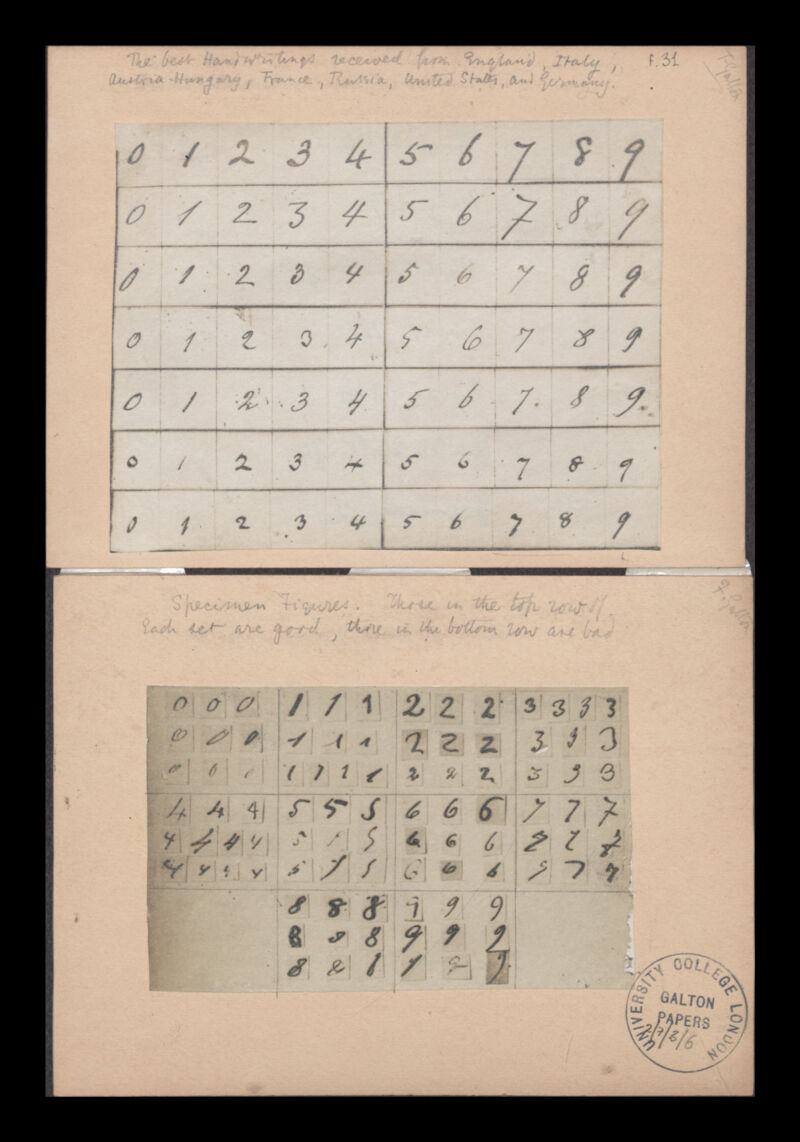 The best Handwritings received from England, Italy, F. 31
Austria-Hungary, France, Russia, United States, and Germany.
F Galton
0 1 2 3 4 5 6 7 8 9
0 1 2 3 4 5 6 7 8 9
0 1 2 3 4 5 6 7 8 9
0 1 2 3 4 5 6 7 8 9
0 1 2 3 4 5 6 7 8 9
0 1 2 3 4 5 6 7 8 9
0 1 2 3 4 5 6 7 8 9
Specimen Figures. Those in the top row of
Each set are good, those in the bottom row are bad
F. Galton
0 0 0 1 1 1 2 2 2 3 3 3 3
0 0 0 1 1 1 2 2 2 3 3 3
0 0 0 1 1 1 1 2 2 2 3 3 3
4 4 4 5 5 5 6 6 6 7 7 7
4 4 4 4 5 5 5 6 6 6 7 7 7
4 4 4 4 5 5 5 6 6 6 7 7 7
8 8 8 9 9 9
8 8 8 9 9 9
8 8 8 9 9 9
UNIVERSITY COLLEGE LONDON
GALTON
PAPERS
2/7/8/6